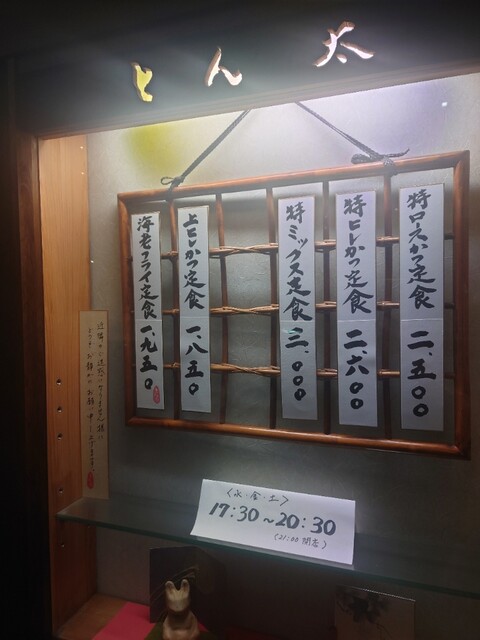 とん太
特ロースかつ定食 二、五〇〇
特ヒレかつ定食 二、六〇〇
特ミックス定食 三、〇〇〇
上ヒレかつ定食 一、八五〇
海老フライ定食 一、九五〇
＜水・金・土＞
17:30～20:30
(21:00 閉店)